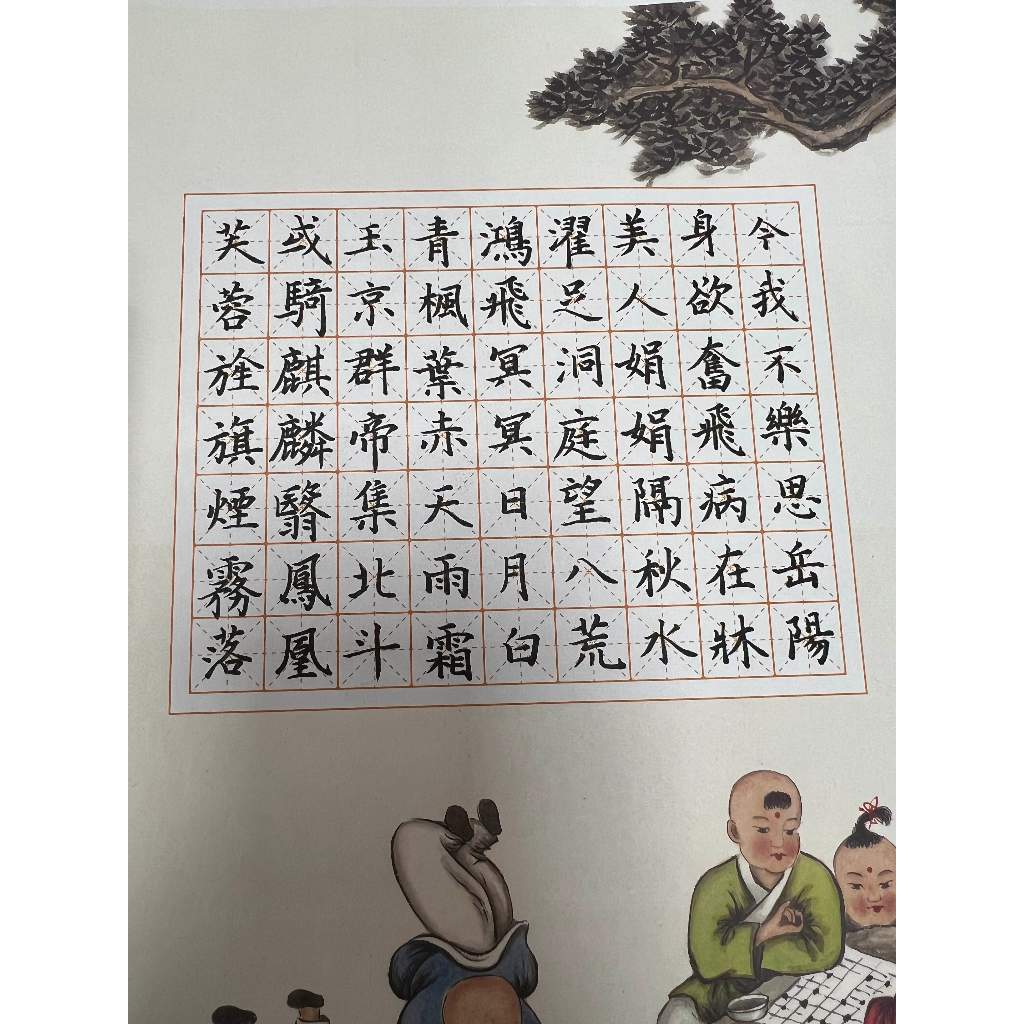 今我不樂思岳陽
身欲奮飛病在牀
美人娟娟隔秋水
濯足洞庭望八荒
鴻飛冥冥日月白
青楓葉赤天雨霜
玉京群帝集北斗
或騎麒麟翳鳳凰
芙蓉旌旗煙霧落